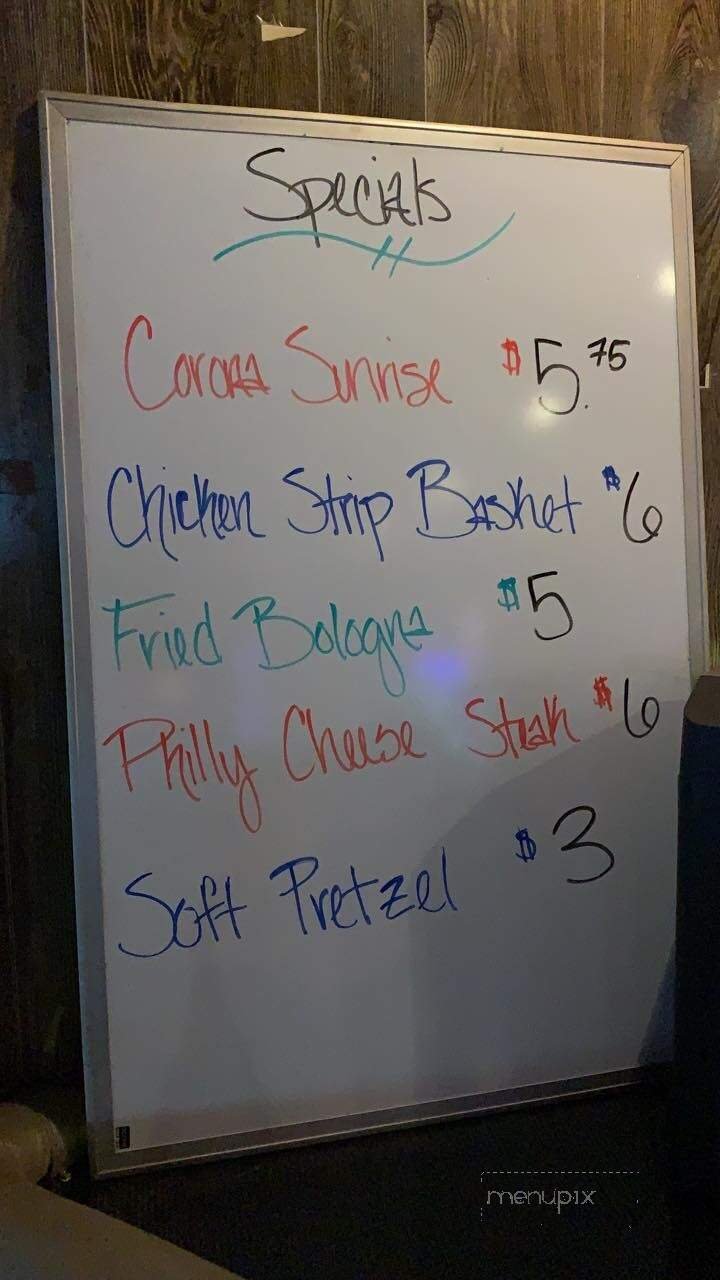 Specials
Corona Sunrise $5.75
Chicken Strip Basket $6
Fried Bologna $5
Philly Cheese Steak $6
Soft Pretzel $3
menupix